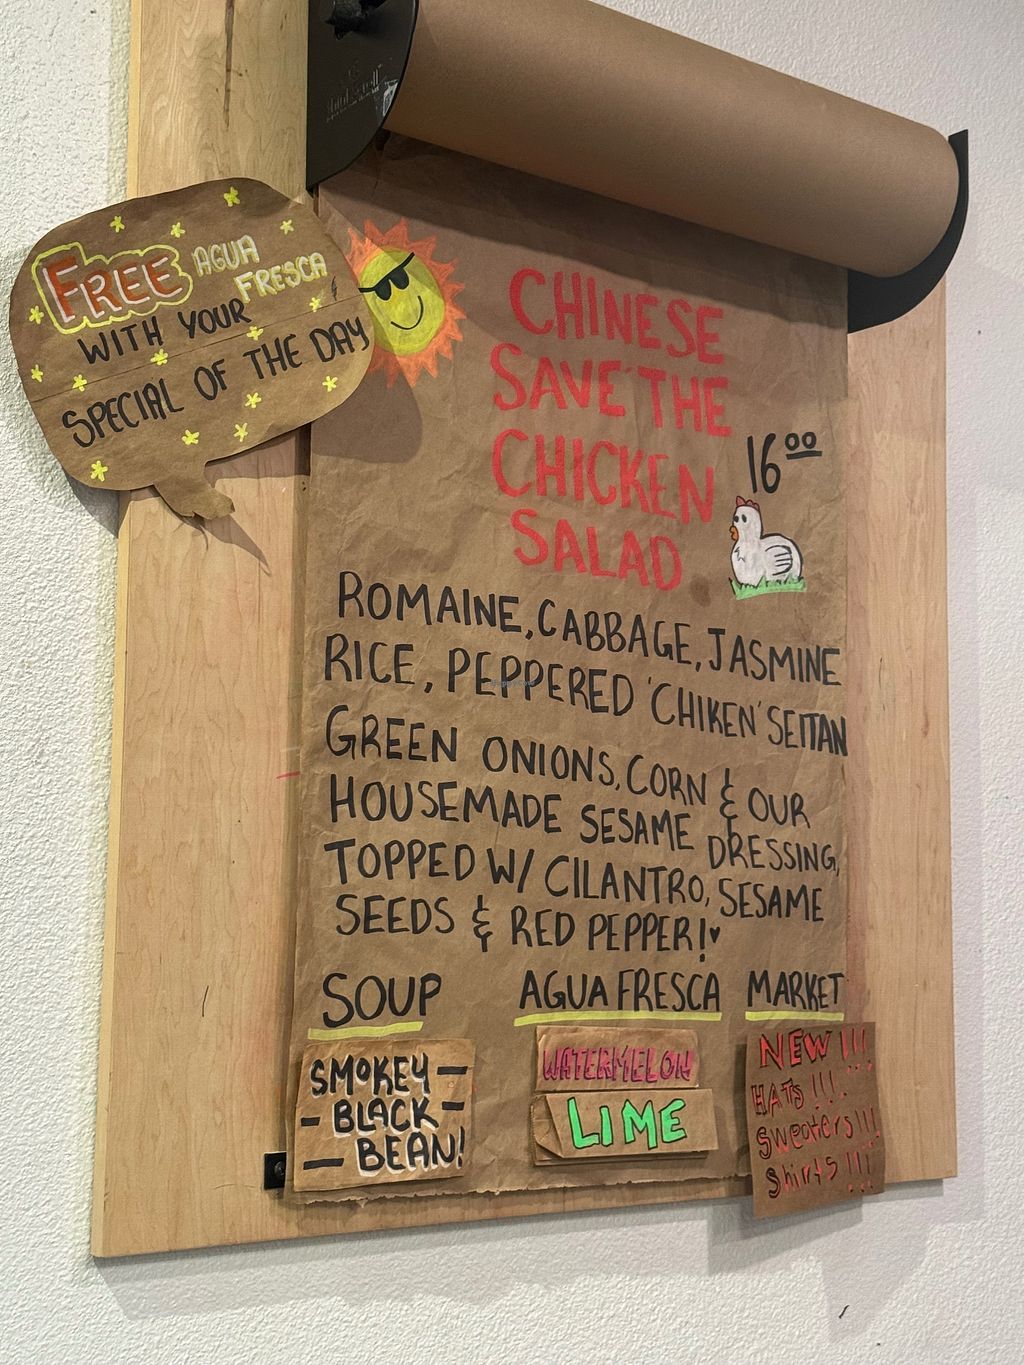 FREE AGUA
FRESCA
WITH YOUR
SPECIAL OF THE DAY
CHINESE
SAVE THE
CHICKEN
SALAD
16.00
ROMAINE, CABBAGE, JASMINE
RICE, PEPPERED 'CHIKEN' SEITAN
GREEN ONIONS, CORN & OUR
HOUSEMADE SESAME DRESSING,
TOPPED W/ CILANTRO, SESAME
SEEDS & RED PEPPER!♥
SOUP
SMOKEY —
— BLACK —
— BEAN!
AGUA FRESCA
WATERMELON
LIME
MARKET
NEW!!!
HATS!!!
Sweaters!!!
Shirts!!!